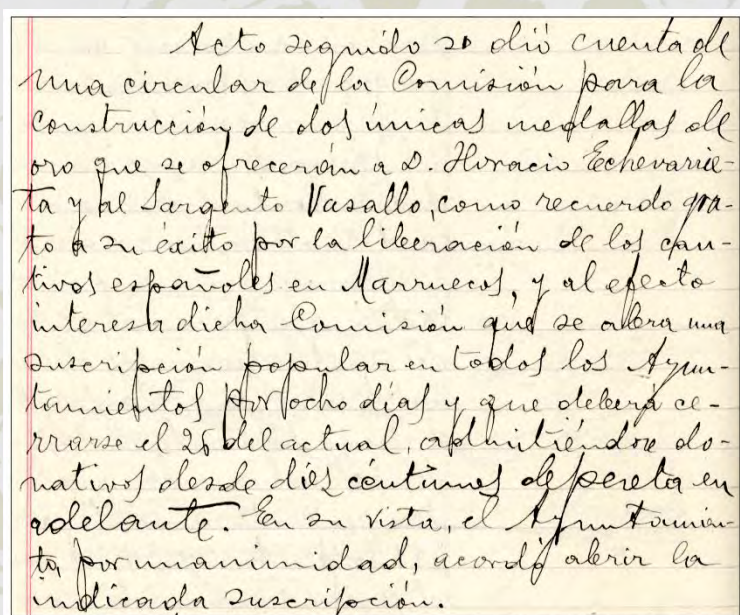 Acto seguido se dió cuenta de
una circular de la Comisión para la
construcción de dos únicas medallas de
oro que se ofrecerán a D. Horacio Echevarrie-
ta y al Sargento Vasallo, como recuerdo gra-
to a su éxito por la liberación de los cau-
tivos españoles en Marruecos, y al efecto
interesa dicha Comisión que se abra una
suscripción popular en todos los Ayun-
tamientos por ocho días y que deberá ce-
rrarse el 26 del actual, admitiéndose do-
nativos desde diez céntimos de peseta en
adelante. En su vista, el Ayuntamien-
to por unanimidad, acordó abrir la
indicada suscripción.